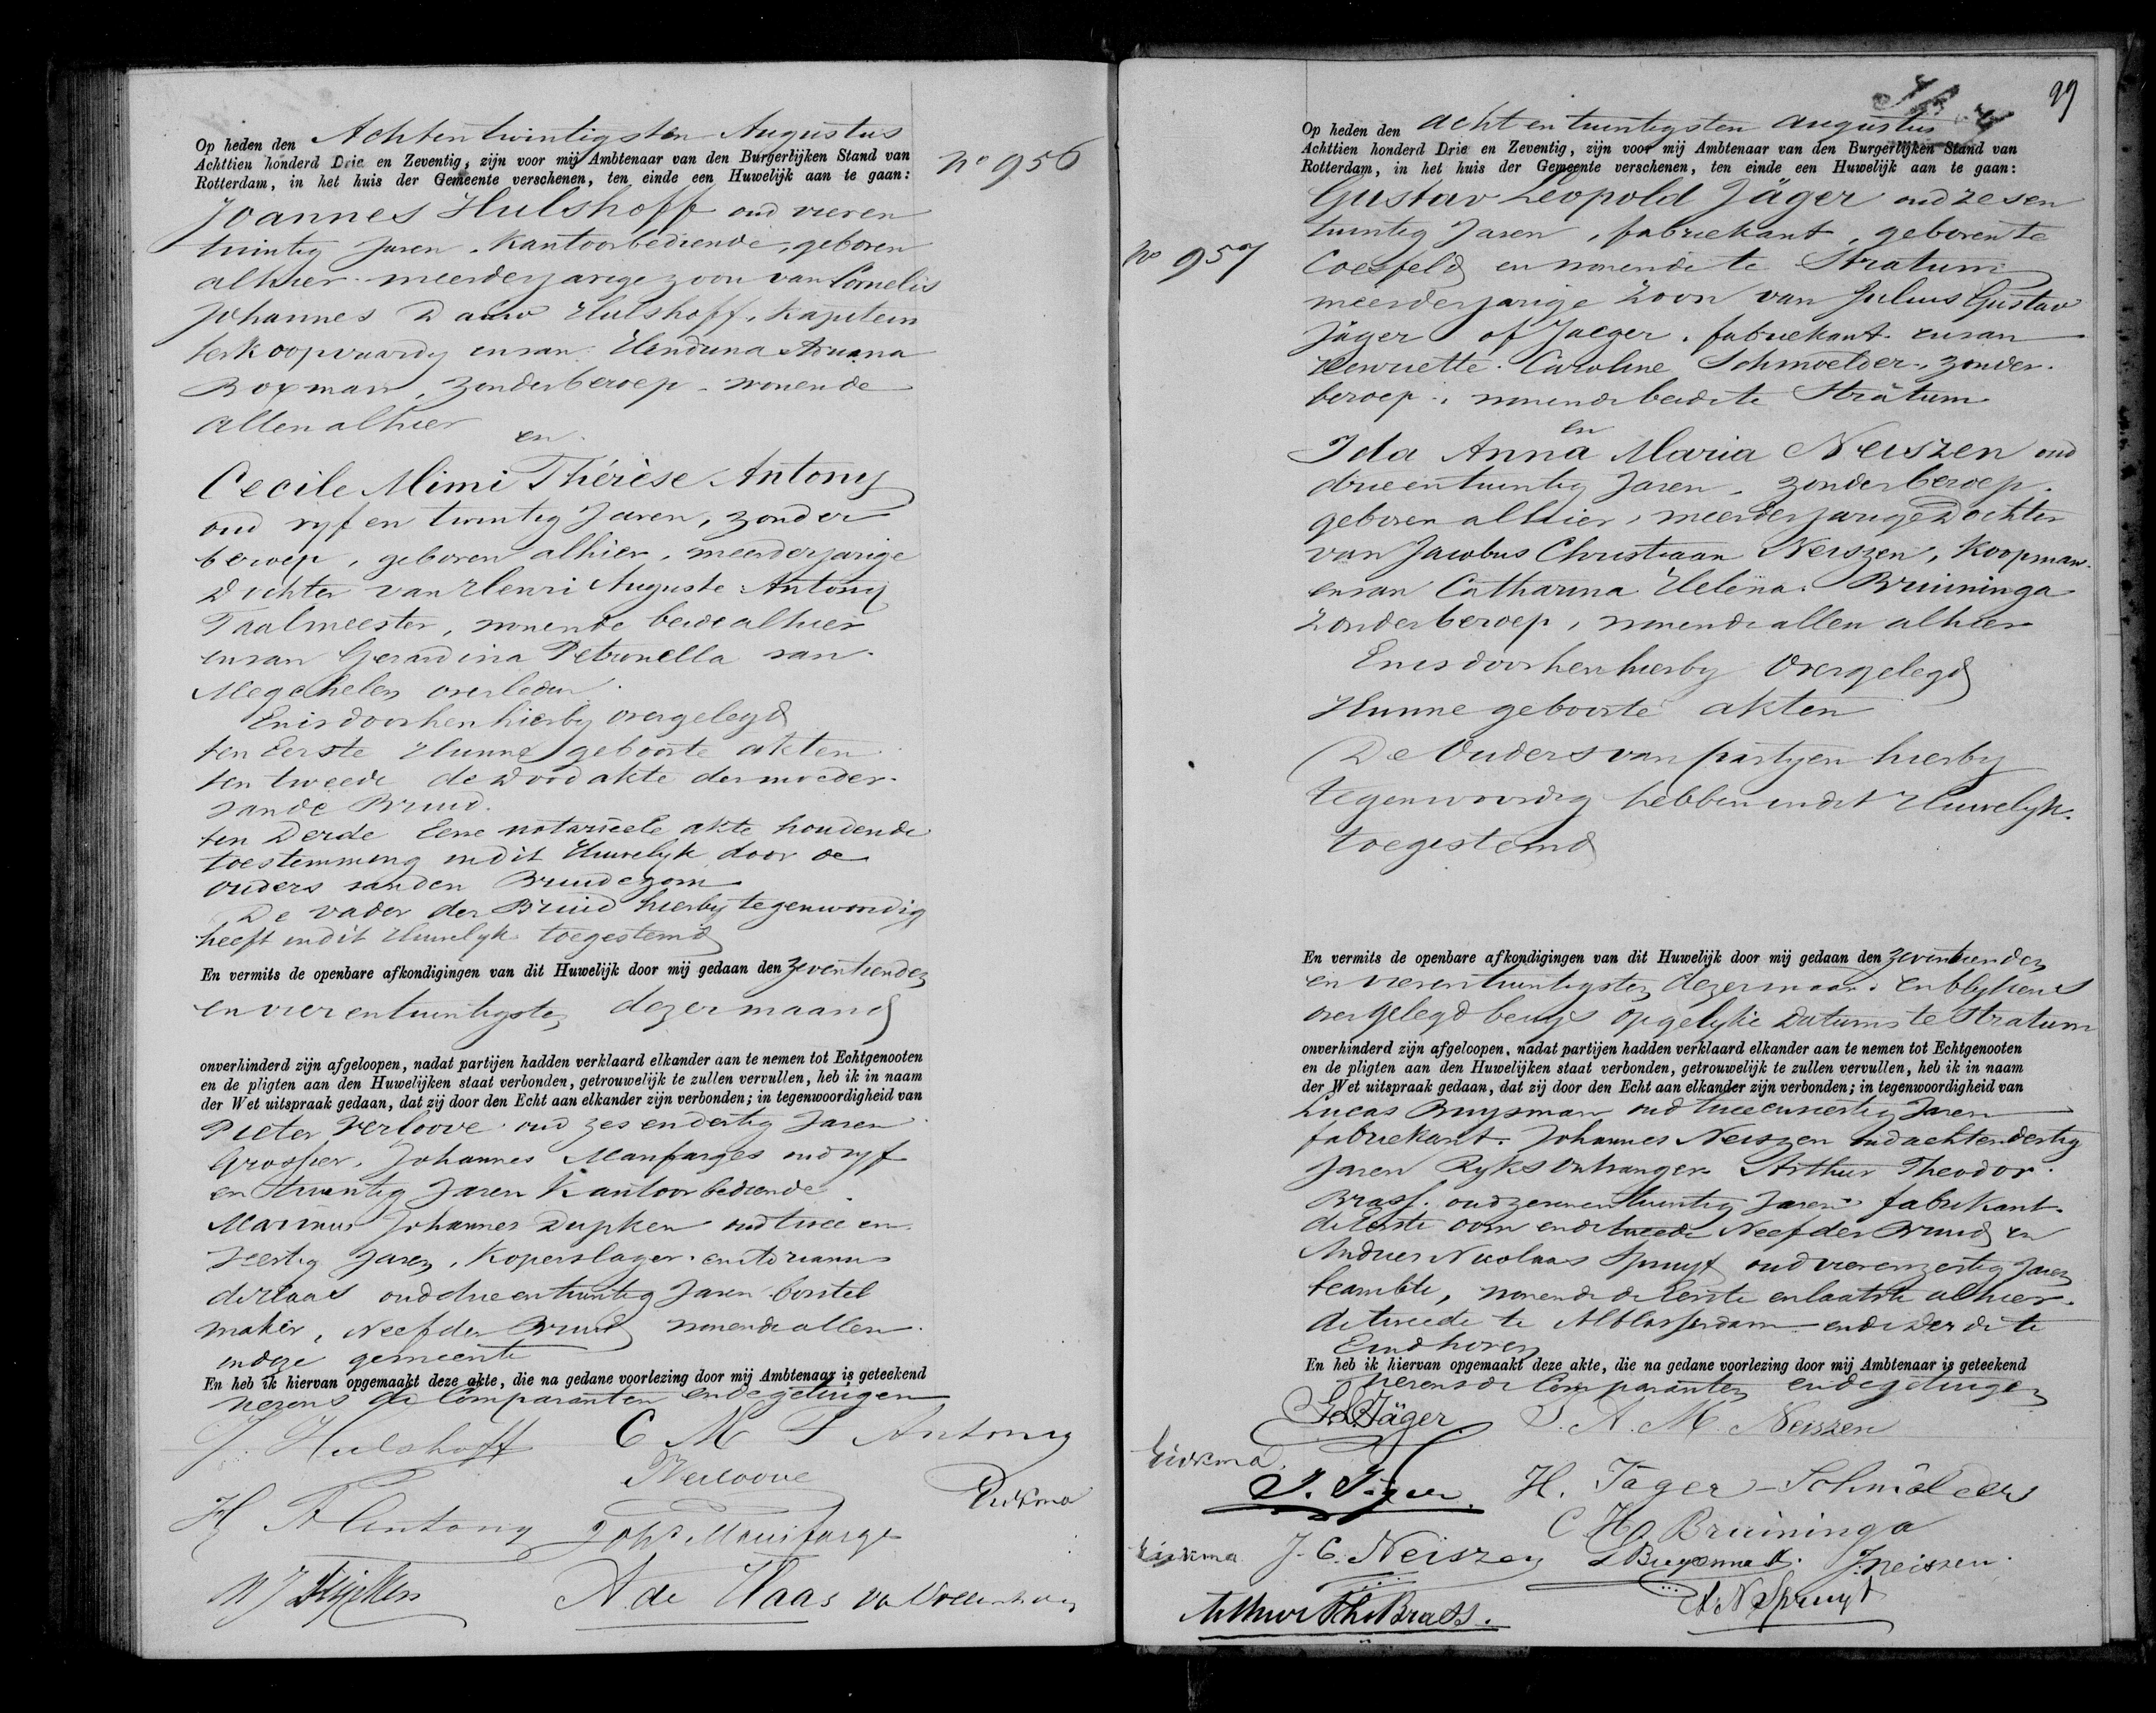 Op heden den Achtentwintigsten Augustus
Achttien honderd Drie en Zeventig, zijn voor mij Ambtenaar van den Burgerlijken Stand van
Rotterdam, in het huis der Gemeente verschenen, ten einde een Huwelijk aan te gaan:
No 956
Joannes Hulshoff oud vieren
twintig Jaren. Kantoorbediende, geboren
alhier meerderjarige zoon van Cornelis
Johannes Hulshoff, Kapitein
ter koopvaardy en van Hendrina Adriana
Boxman, zonder beroep - wonende
allen alhier
en
Cecile Mimi Thérèse Antony
oud vyf en twintig Jaren, zonder
beroep, geboren alhier, meerderjarige
Dochter van Henri Auguste Antony
Taalmeester, wonende beide alhier
en van Gerardina Petronella van
Megchelen overleden.
En is door hen hierby overgelegd
ten Eerste Hunne geboorte akten
ten tweede de Dood akte der moeder
van de Bruid.
ten Derde Eene notarieele akte houdende
toestemming in dit Huwelyk door de
ouders van den Bruidegom
De vader der Bruid hierby tegenwoordig
heeft in dit Huwelyk toegestemd
En vermits de openbare afkondigingen van dit Huwelijk door mij gedaan den Zeventienden
en vierentwintigsten dezer maand
onverhinderd zijn afgeloopen, nadat partijen hadden verklaard elkander aan te nemen tot Echtgenooten
en de pligten aan den Huwelijken staat verbonden, getrouwelijk te zullen vervullen, heb ik in naam
der Wet uitspraak gedaan, dat zij door den Echt aan elkander zijn verbonden; in tegenwoordigheid van
Pieter Verloove oud zes en dertig Jaren
Grossier, Johannes Manfarges oud vyf
en twintig Jaren Kantoorbediende
Marinus Johannes oud twee en
veertig Jaren, Koperslager en Adrianus
de Haas oud drie en twintig Jaren borstel
maker, Neef der Bruid wonende allen
in deze gemeente
En heb ik hiervan opgemaakt deze akte, die na gedane voorlezing door mij Ambtenaar is geteekend
nevens de Comparanten en de getuigen
J. Hulshoff C M T Antony
PVerloove
H A Antony
A. de Haas
99
Op heden den achtentwintigsten augustus
Achttien honderd Drie en Zeventig, zijn voor mij Ambtenaar van den Burgerlijken Stand van
Rotterdam, in het huis der Gemeente verschenen, ten einde een Huwelijk aan te gaan:
No 957
Gustav Leopold Jäger oud zesen
twintig Jaren, fabriekant, geboren te
Coesfeld en wonende te Stratum
meerderjarige Zoon van Julius Gustav
Jäger of Jaeger, fabriekant en van
Henriette Caroline Schmoelder, zonder
beroep, wonende beide te Stratum
en
Ida Anna Maria Neiszen oud
drieentwintig Jaren, zonder beroep,
geboren alhier, meerderjarige Dochter
van Jacobus Christiaan Neiszen, Koopman
en van Catharina Helena Bruininga
Zonder beroep, wonende allen alhier
En is door hen hierby Overgelegd
Hunne geboorte akten
De Ouders van partyen hierby
tegenwoordig hebben in dit Huwelyk
toegestemd
En vermits de openbare afkondigingen van dit Huwelijk door mij gedaan den zeventienden
en vierentwintigsten dezer maand en blykens
overgelegd bewys op gelyke Datums te Stratum
onverhinderd zijn afgeloopen, nadat partijen hadden verklaard elkander aan te nemen tot Echtgenooten
en de pligten aan den Huwelijken staat verbonden, getrouwelijk te zullen vervullen, heb ik in naam
der Wet uitspraak gedaan, dat zij door den Echt aan elkander zijn verbonden; in tegenwoordigheid van
Lucas Buysman oud tweeenveertig Jaren
fabriekant. Johannes Neiszen oud achtendertig
Jaren Ryks Ontvanger Arthur Theodor
Brass. oud zevenentwintig Jaren fabrikant
de Eerste oom en de tweede Neef der Bruid en
Andries Nicolaas Spruyt oud vierenzestig Jaren
beambte, wonende de Eerste en laatste alhier
de tweede te Alblasserdam en de Derde te
Eindhoven
En heb ik hiervan opgemaakt deze akte, die na gedane voorlezing door mij Ambtenaar is geteekend
nevens de Comparanten en de getuigen
G.L. Jäger I. A. M. Neiszen
J. Jäger H. Jäger-Schmölder
C H Bruininga
J. C. Neiszen L Buysman J. Neiszen.
Arthur Th Brass. A. N Spruyt